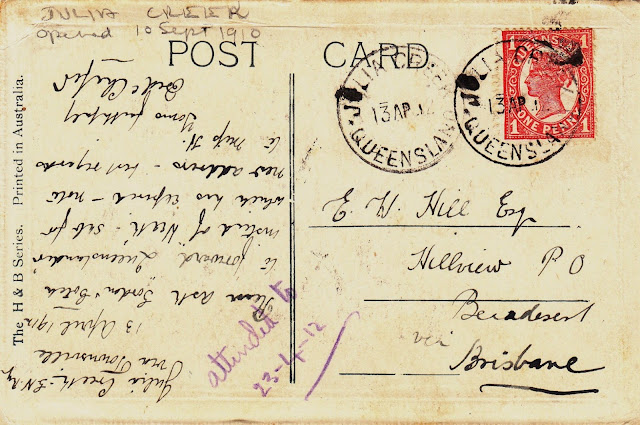 JULIA CREEK
Opened 10 Sept 1910
POST CARD
JULIA CREEK
13 AP 12
QUEENSLAND
JULIA CREEK
13 AP 12
QUEENSLAND
QUEENSLAND
1 1
ONE PENNY
E. W. Hill Esq
Hillview P O
Beaudesert
via
Brisbane
Julia Creek
via Townsville
13 April 1912
Please ask Gordon & Gotch
to forward Queenslander
instead of Week - sub for
which has expired - note
new address - regards
to Mrs H.
Yours faithfully
attended to
23-4-12
The H & B Series. Printed in Australia.